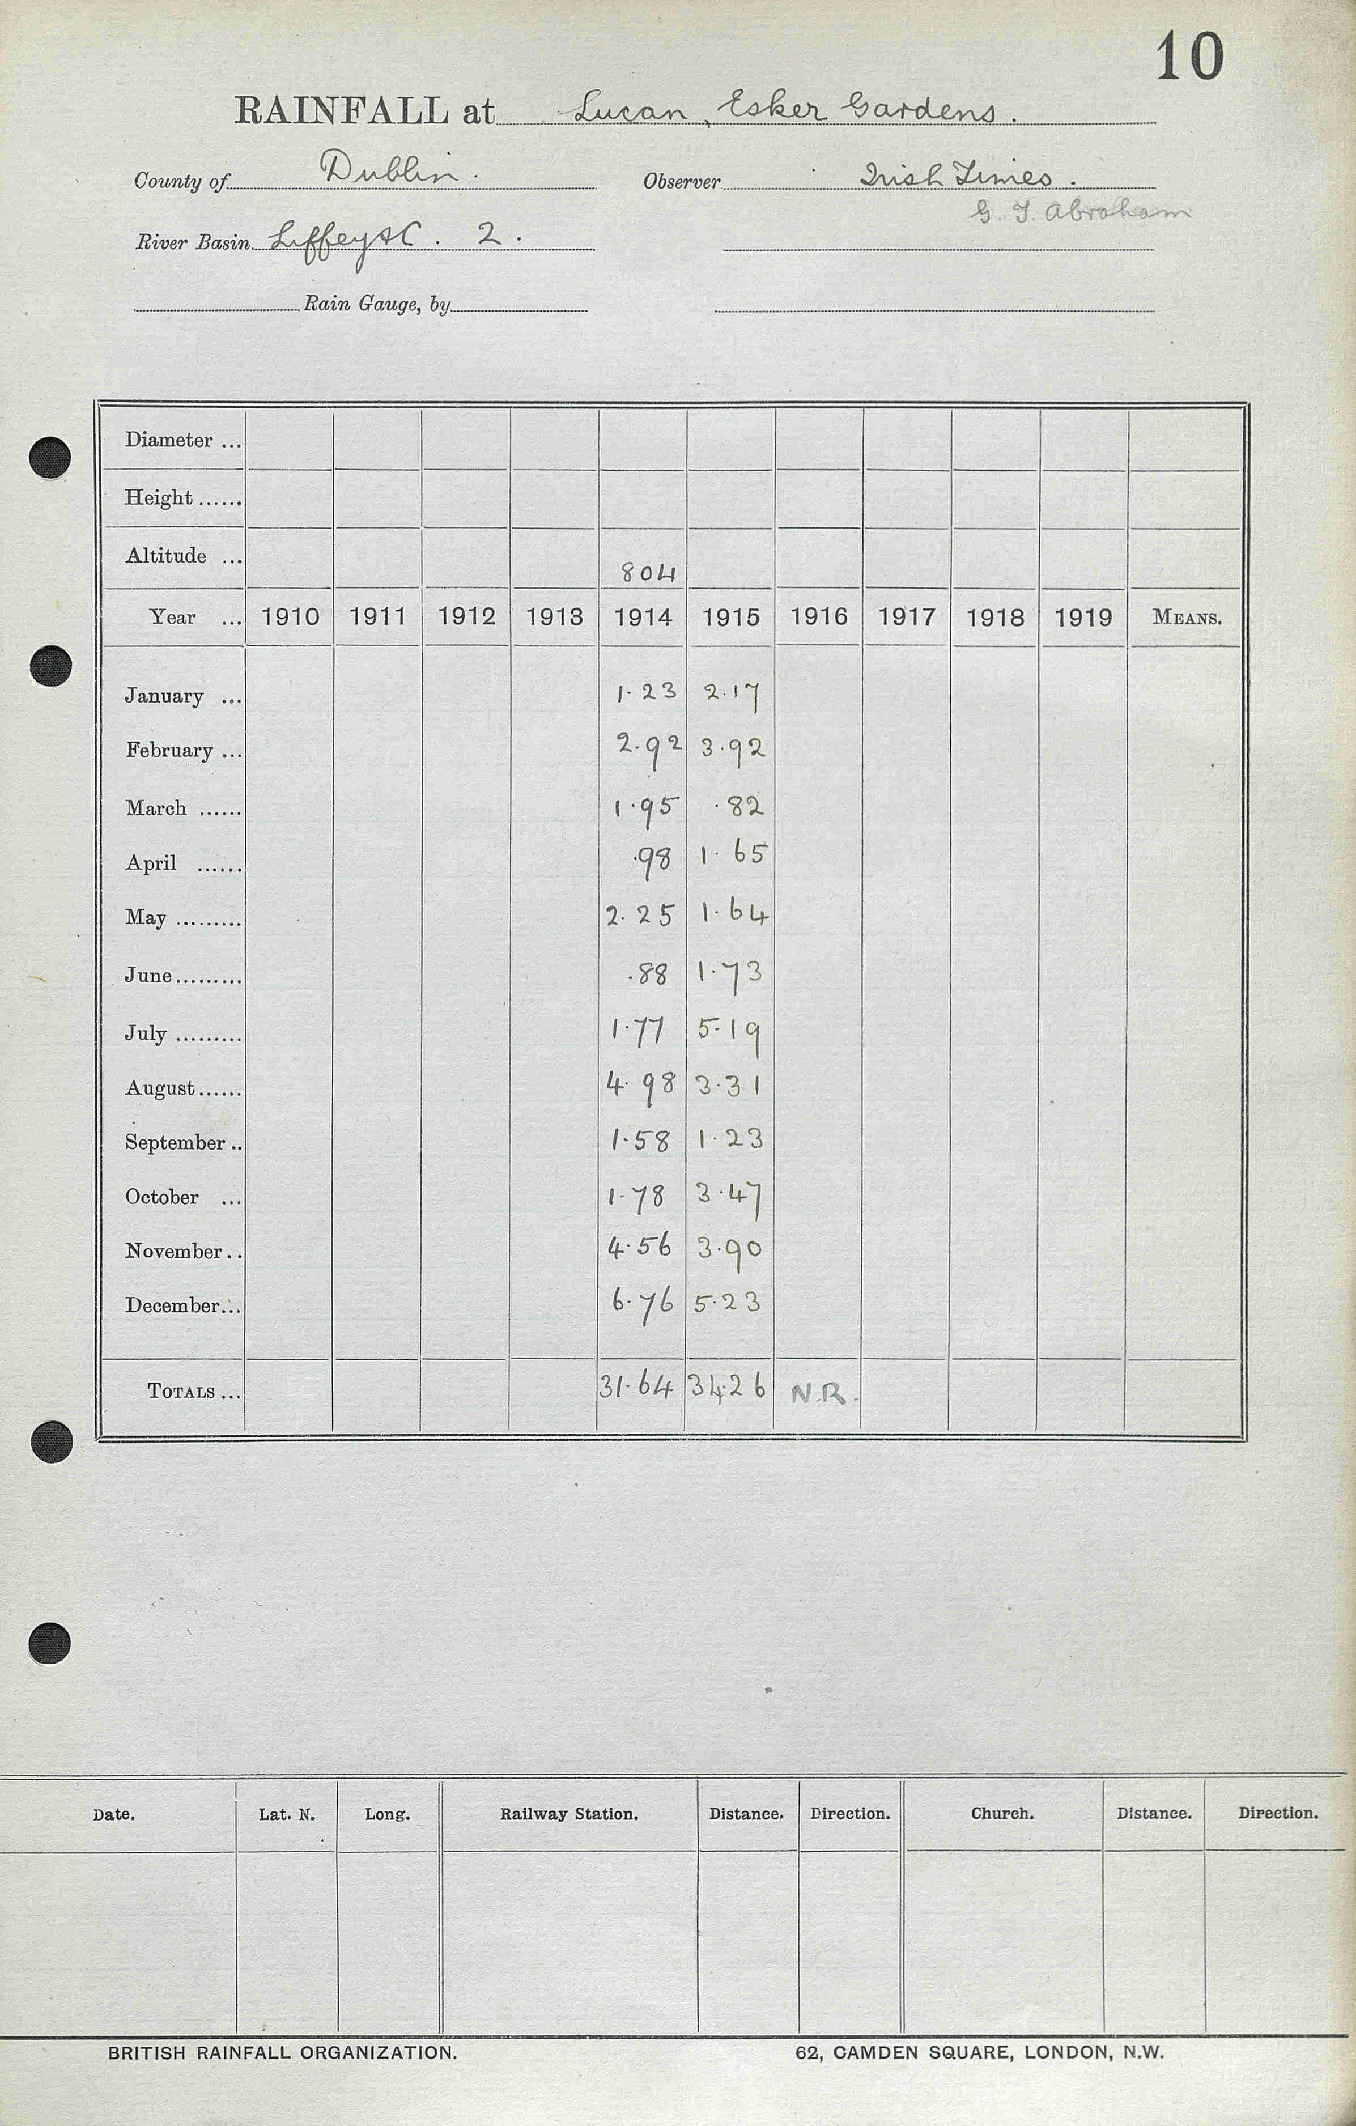 10
RAINFALL at Lucan, Esker Gardens.
County of Dublin. Observer Irish Times.
G. J. Abraham
River Basin Liffey &C. 2.
Rain Gauge, by
Diameter ...
Height ......
Altitude ... 804
Year ... 1910 1911 1912 1913 1914 1915 1916 1917 1918 1919 MEANS.
January ... 1.23 2.17
February ... 2.92 3.92
March ...... 1.95 .82
April ...... .98 1.65
May ......... 2.25 1.64
June ......... .88 1.73
July ......... 1.77 5.19
August ...... 4.98 3.31
September .. 1.58 1.23
October ... 1.78 3.47
November .. 4.56 3.90
December ... 6.76 5.23
TOTALS ... 31.64 34.26 N.R.
Date. Lat. N. Long. Railway Station. Distance. Direction. Church. Distance. Direction.
BRITISH RAINFALL ORGANIZATION. 62, CAMDEN SQUARE, LONDON, N.W.